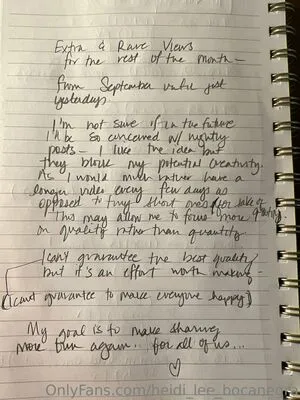 Extra & Rare Views
for the rest of the month –
from September until just
yesterdays
I'm not sure if in the future
I'll be so concerned w/ nightly
posts – I like the idea but
they block my potential creativity.
As I would much rather have a
longer video every few days as
opposed to tiny short ones for sake of
This may allow me to focus more
on quality rather than quantity.
I can't guarantee the best quality
but it's an effort worth making –
(I cant guarantee to make everyone happy)
My goal is to make sharing
more fun again.. for all of us...
♡
OnlyFans.com/heidi_lee_bocanegra